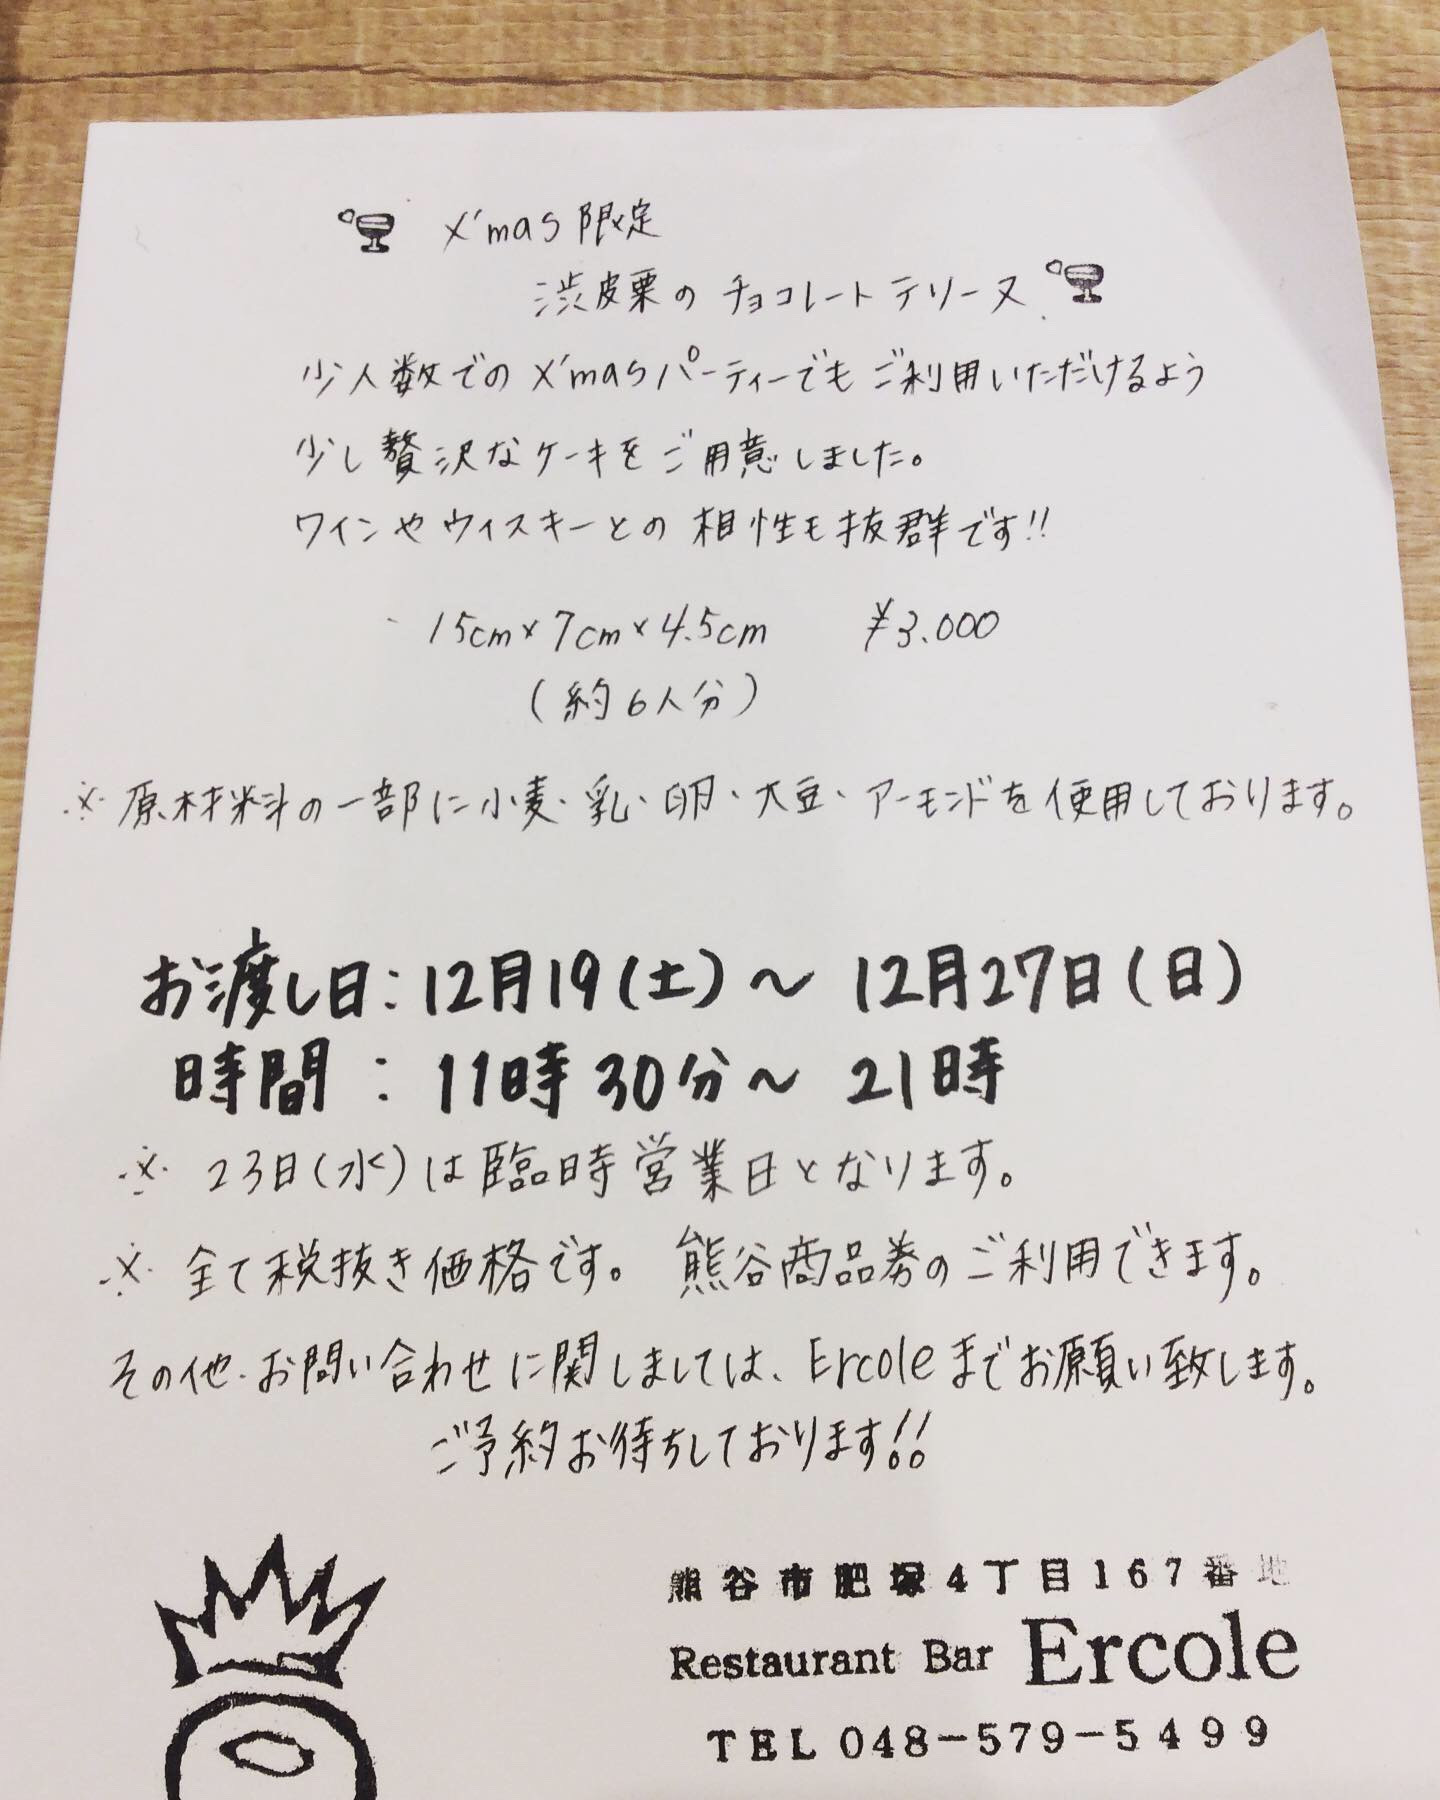 X'mas 限定
渋皮栗のチョコレートテリーヌ
少人数でのX'masパーティーでもご利用いただけるよう
少し贅沢なケーキをご用意しました。
ワインやウィスキーとの相性も抜群です!!
15cm×7cm×4.5cm ¥3.000
(約6人分)
※原材料の一部に小麦・乳・卵・大豆・アーモンドを使用しております。
お渡し日:12月19(土)～12月27日(日)
時間:11時30分～21時
※23日(水)は臨時営業日となります。
※全て税抜き価格です。熊谷商品券のご利用できます。
その他・お問い合わせに関しましては、Ercoleまでお願い致します。
ご予約お待ちしております!!
熊谷市肥塚4丁目167番地
Restaurant Bar Ercole
TEL 048-579-5499